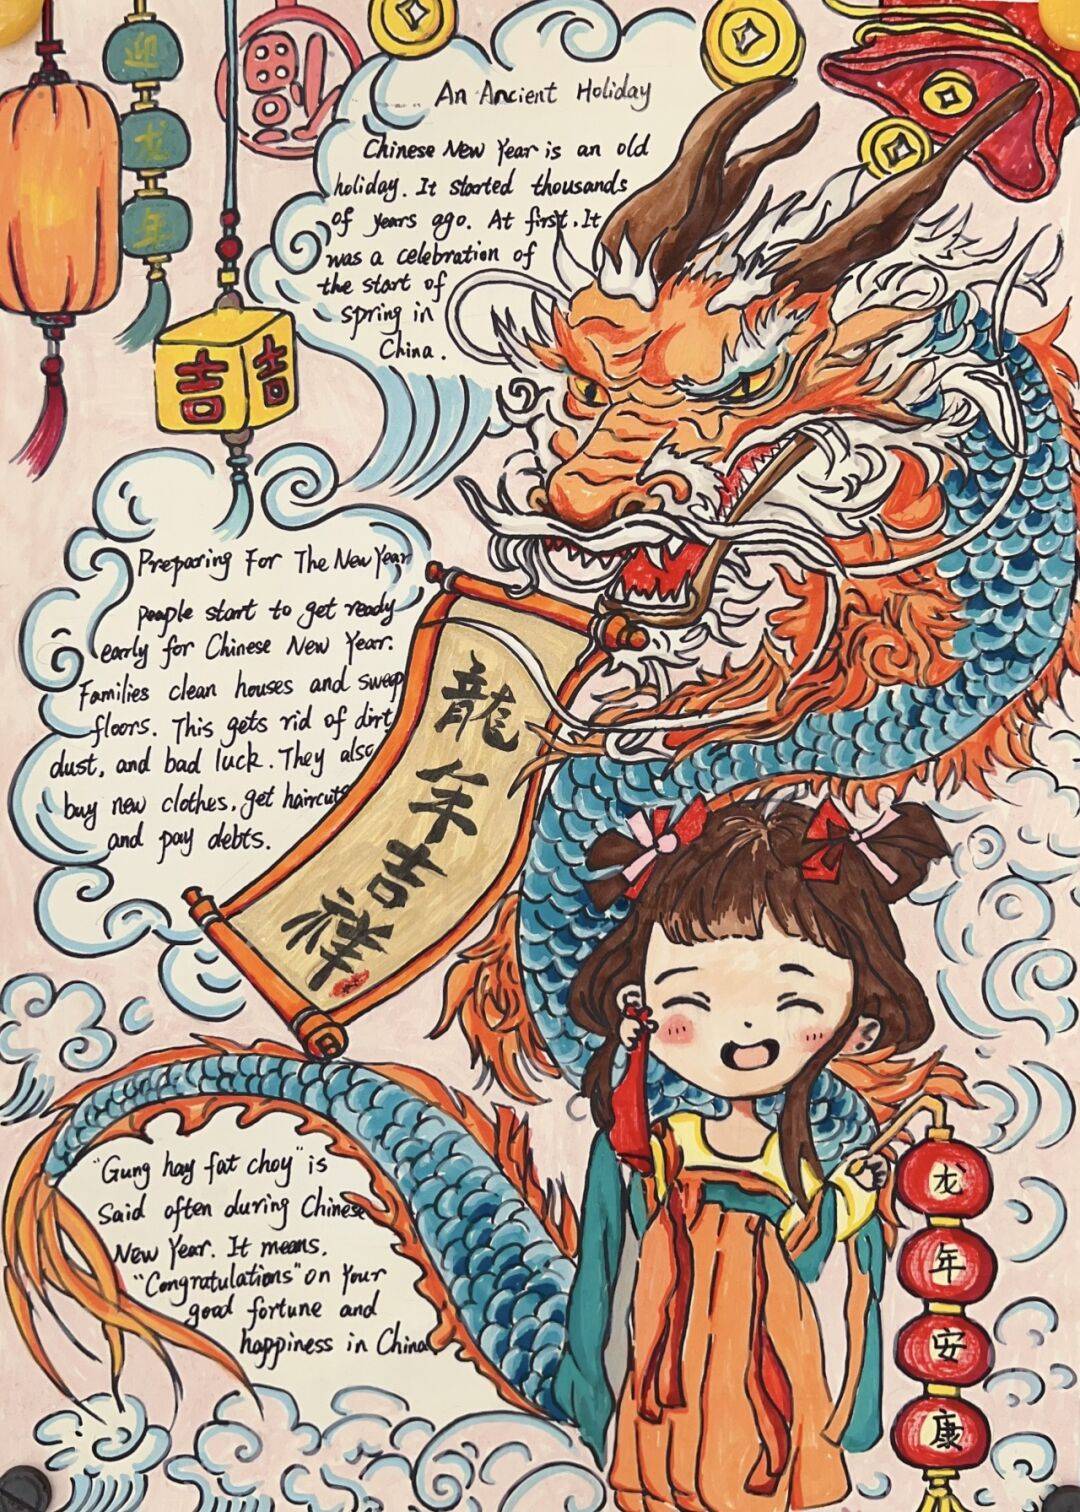 迎
龙
年
福
吉
吉
An Ancient Holiday
Chinese New Year is an old
holiday. It started thousands
of years ago. At first. It
was a celebration of
the start of
spring in
China.
Preparing For The New Year
people start to get ready
early for Chinese New Year.
Families clean houses and sweep
floors. This gets rid of dirt,
dust, and bad luck. They also
buy new clothes, get haircuts
and pay debts.
龍
年
吉
祥
"Gung hay fat choy" is
said often during Chinese
New Year. It means.
"Congratulations" on Your
good fortune and
happiness in China.
龙
年
安
康